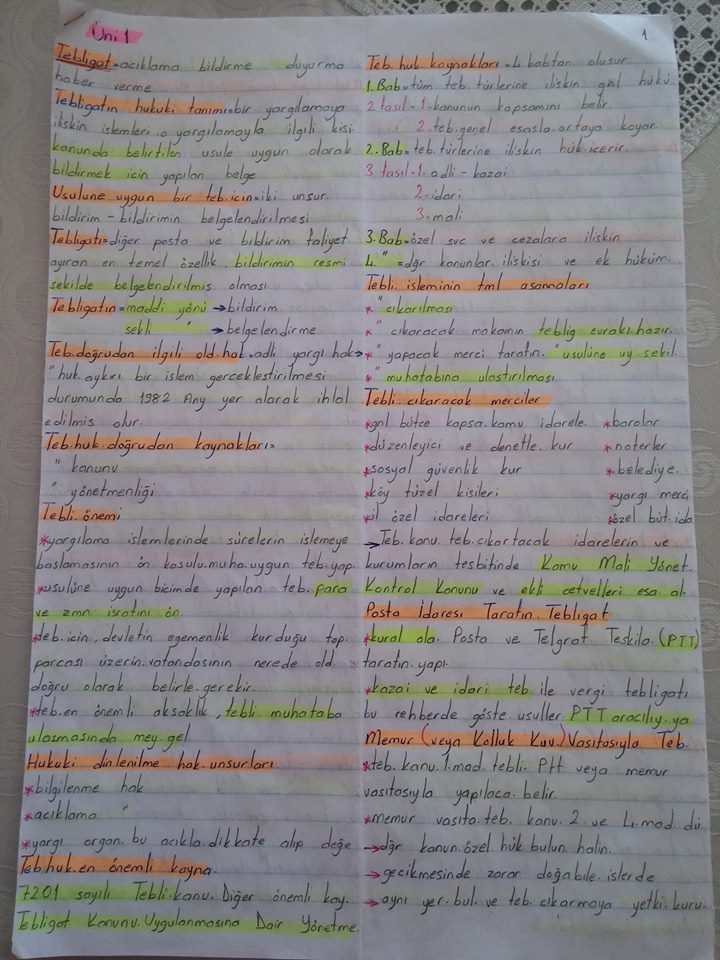 Üni 1
Tebligat=açıklama bildirme duyurma
haber verme
Tebligatın hukuki tanımı=bir yargılamaya
ilişkin işlemleri o yargılamayla ilgili kişi
kanunda belirtilen usule uygun olarak
bildirmek için yapılan belge
Usulune uygun bir teb.için=iki unsur.
bildirim - bildirimin belgelendirilmesi
Tebligatı=diğer posta ve bildirim faliyet
ayıran en temel özellik bildirimin resmi
şekilde belgelendirilmiş olması
Tebligatın=maddi yönü → bildirim
şekli " → belgelendirme
Teb.doğrudan ilgili old.hak=adli yargı hak→
" huk.aykırı bir işlem gerçekleştirilmesi
durumunda 1982 Any yer alarak ihlal
edilmiş olur.
Teb.huk.doğrudan kaynakları=
" kanunu
" yönetmenliği
Tebli.önemi
*yargılama işlemlerinde sürelerin işlemeye
başlamasının ön koşulu.muha.uygun teb.yap.
*usulüne uygun biçimde yapılan teb. para
ve zmn israfını ön.
*teb.için, devletin egemenlik kurduğu top.
parçası üzerin.vatandaşının nerede old.
doğru olarak belirle.gerekir.
*teb.en önemli aksaklık, tebli muhataba
ulaşmasında mey.gel
Hukuki dinlenilme hak.unsurları
*bilgilenme hak
*açıklama "
*yargı organ. bu açıkla.dikkate alıp değe
Teb.huk.en önemli kayna.
7201 sayılı Tebli.kanu. Diğer önemli kay.
Tebligat Kanunu.Uygulanmasına Dair Yönetme.
1
Teb.huk.kaynakları=4 babtan oluşur
1.Bab=tüm teb.türlerine ilişkin gnl hükü
2 fasıl-1-kanunun kapsamını belir
2.teb.genel esasla.ortaya koyar
2.Bab=teb.türlerine ilişkin hük.içerir.
3 fasıl-1.adli-kazai
2.idari
3.mali
3.Bab=özel suç ve cezalara ilişkin
4. " =dğr kanunlar.ilişkisi ve ek hüküm.
Tebli.işleminin tml aşamaları
* " çıkarılması
* " çıkaracak makamın tebliğ evrakı.hazır.
* " yapacak merci tarafın. "usulüne uy şekil.
* " muhatabına ulaştırılması
Tebli.çıkaracak merciler
*gnl bütçe kapsa.kamu idarele. *barolar
*düzenleyici ve denetle.kur *noterler
*sosyal güvenlik kur *belediye.
*köy tüzel kişileri *yargı merci
*il özel idareleri *özel büt.ida
→Teb.kanu.teb.çıkartacak idarelerin ve
kurumların tesbitinde Kamu Mali Yönet.
Kontrol Kanunu ve ekli cetvelleri esa.al.
Posta İdaresi Tarafın.Tebligat
*kural ola. Posta ve Telgraf Teşkila.(PTT)
tarafın.yapı.
*kazai ve idari teb.ile vergi tebligatı
bu rehberde göste usuller PTT aracılıy.ya
Memur (veya Kolluk Kuv.) Vasıtasıyla Teb.
*teb.kanu.1.mad.tebli.Ptt veya memur
vasıtasıyla yapılaca.belir.
*memur vasıta.teb. kanu.2. ve 4.mad.dü.
→dğr kanun.özel hük bulun halin.
→gecikmesinde zarar doğabile.işlerde
→aynı yer.bul.ve teb.çıkarmaya yetki.kuru.